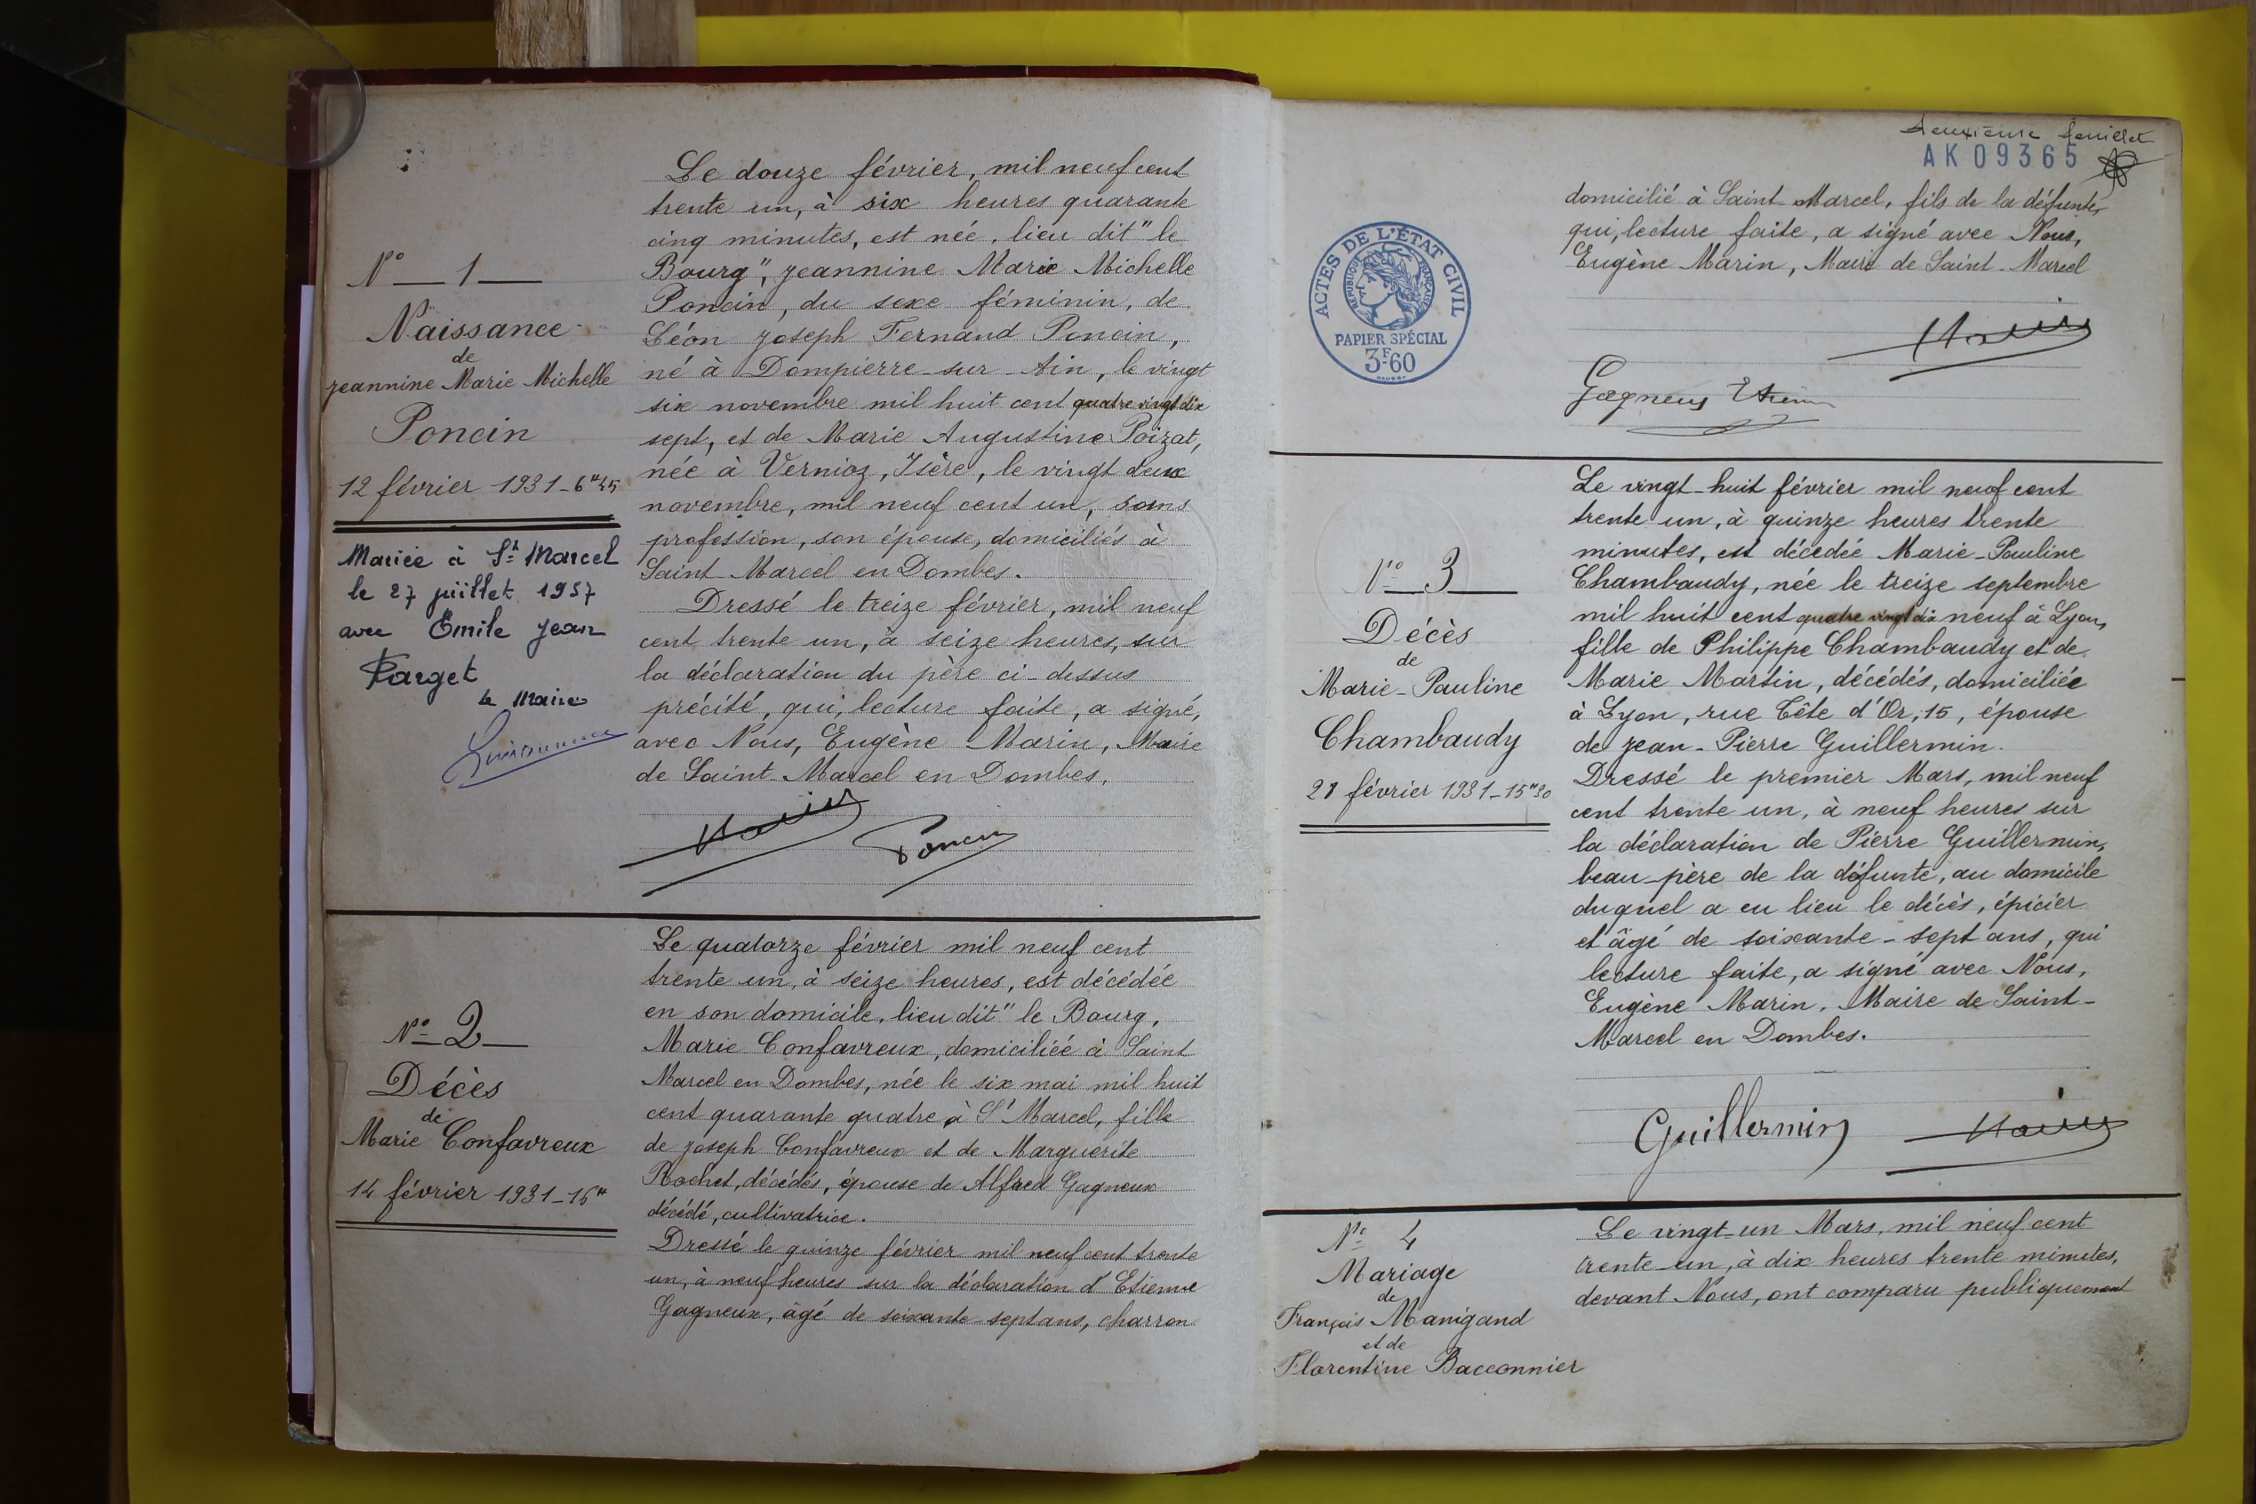 N° 1
Naissance
de
Jeannine Marie Michelle
Poncin
12 février 1931 - 6H45
Mariée à St Marcel
le 27 juillet 1957
avec Emile Jean
Parget
Le Maire
Le douze février, mil neuf cent
trente un, à six heures quarante
cinq minutes, est née, lieu dit "le
Bourg", Jeannine Marie Michelle
Poncin, du sexe féminin, de
Léon Joseph Fernand Poncin,
né à Dompierre-sur-Ain, le vingt
six novembre mil huit cent quatre vingt dix
sept, et de Marie Augustine Poizat,
née à Vernioz, Isère, le vingt deux
novembre, mil neuf cent un, sans
profession, son épouse, domiciliés à
Saint Marcel en Dombes.
Dressé le treize février, mil neuf
cent trente un, à seize heures, sur
la déclaration du père ci-dessus
précité, qui, lecture faite, a signé,
avec Nous, Eugène Marin, Maire
de Saint-Marcel en Dombes.
Marin
Poncin
N° 2
Décès
de
Marie Confavreux
14 février 1931 - 16H
Le quatorze février mil neuf cent
trente un, à seize heures, est décédée
en son domicile, lieu dit "le Bourg,
Marie Confavreux, domiciliée à Saint
Marcel en Dombes, née le six mai mil huit
cent quarante quatre à St Marcel, fille
de Joseph Confavreux et de Marguerite
Rochet, décédés, épouse de Alfred Gagneux
décédé, cultivatrice.
Dressé le quinze février mil neuf cent trente
un, à neuf heures sur la déclaration d'Etienne
Gagneux, âgé de soixante-sept ans, charron
deuxième feuillet
AK09365
ACTES DE L'ÉTAT CIVIL
RÉPUBLIQUE FRANÇAISE
PAPIER SPÉCIAL
3F60
domicilié à Saint-Marcel, fils de la défunte,
qui, lecture faite, a signé avec Nous,
Eugène Marin, Maire de Saint-Marcel
Marin
Gagneux Etienne
N° 3
Décès
de
Marie-Pauline
Chambaudy
28 février 1931 - 15H30
Le vingt-huit février mil neuf cent
trente un, à quinze heures trente
minutes, est décédée Marie-Pauline
Chambaudy, née le treize septembre
mil huit cent quatre vingt dix neuf à Lyon,
fille de Philippe Chambaudy et de
Marie Martin, décédés, domiciliée
à Lyon, rue Tête d'Or, 15, épouse
de Jean-Pierre Guillermin.
Dressé le premier Mars, mil neuf
cent trente un, à neuf heures sur
la déclaration de Pierre Guillermin,
beau-père de la défunte, au domicile
duquel a eu lieu le décès, épicier
et âgé de soixante-sept ans, qui
lecture faite, a signé avec Nous,
Eugène Marin, Maire de Saint-
Marcel en Dombes.
Guillermin
Marin
N° 4
Mariage
de
François Manigand
et de
Florentine Bacconnier
Le vingt-un Mars, mil neuf cent
trente-un, à dix heures trente minutes,
devant Nous, ont comparu publiquement